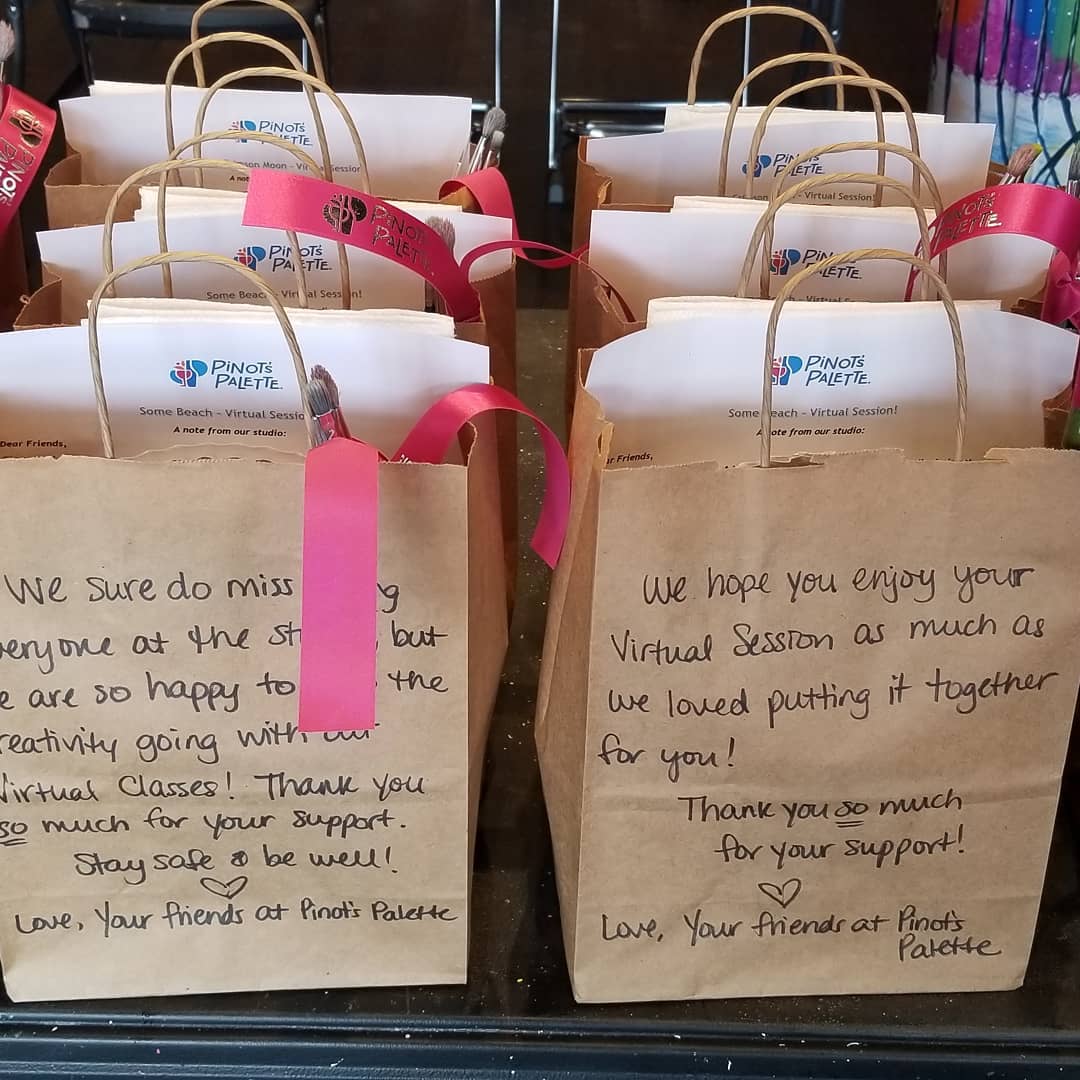 PiNOT'S
PALETTE
PiNOT'S
PALETTE
Moon - Virtual Session
A note
PiNOT'S
PALETTE
Virtual Session!
PiNOT'S
PALETTE
PiNOT'S
PALETTE
PiNOT'S
PALETTE
Some Beach - Virtual Session!
PiNOT'S
PALETTE
PiNOT'S
PALETTE
Virtual
PiNOT'S
PALETTE
Some Beach - Virtual Sessio
A note from our studio:
Dear Friends,
PiNOT'S
PALETTE
Some Beach - Virtual Session!
A note from our studio:
r Friends,
We sure do miss
eryone at the st but
e are so happy to the
reativity going with our
Virtual Classes! Thank you
so much for your support.
Stay safe & be well!
Love, Your friends at Pinot's Palette
We hope you enjoy your
Virtual Session as much as
we loved putting it together
for you!
Thank you so much
for your support!
Love, Your friends at Pinot's
Palette